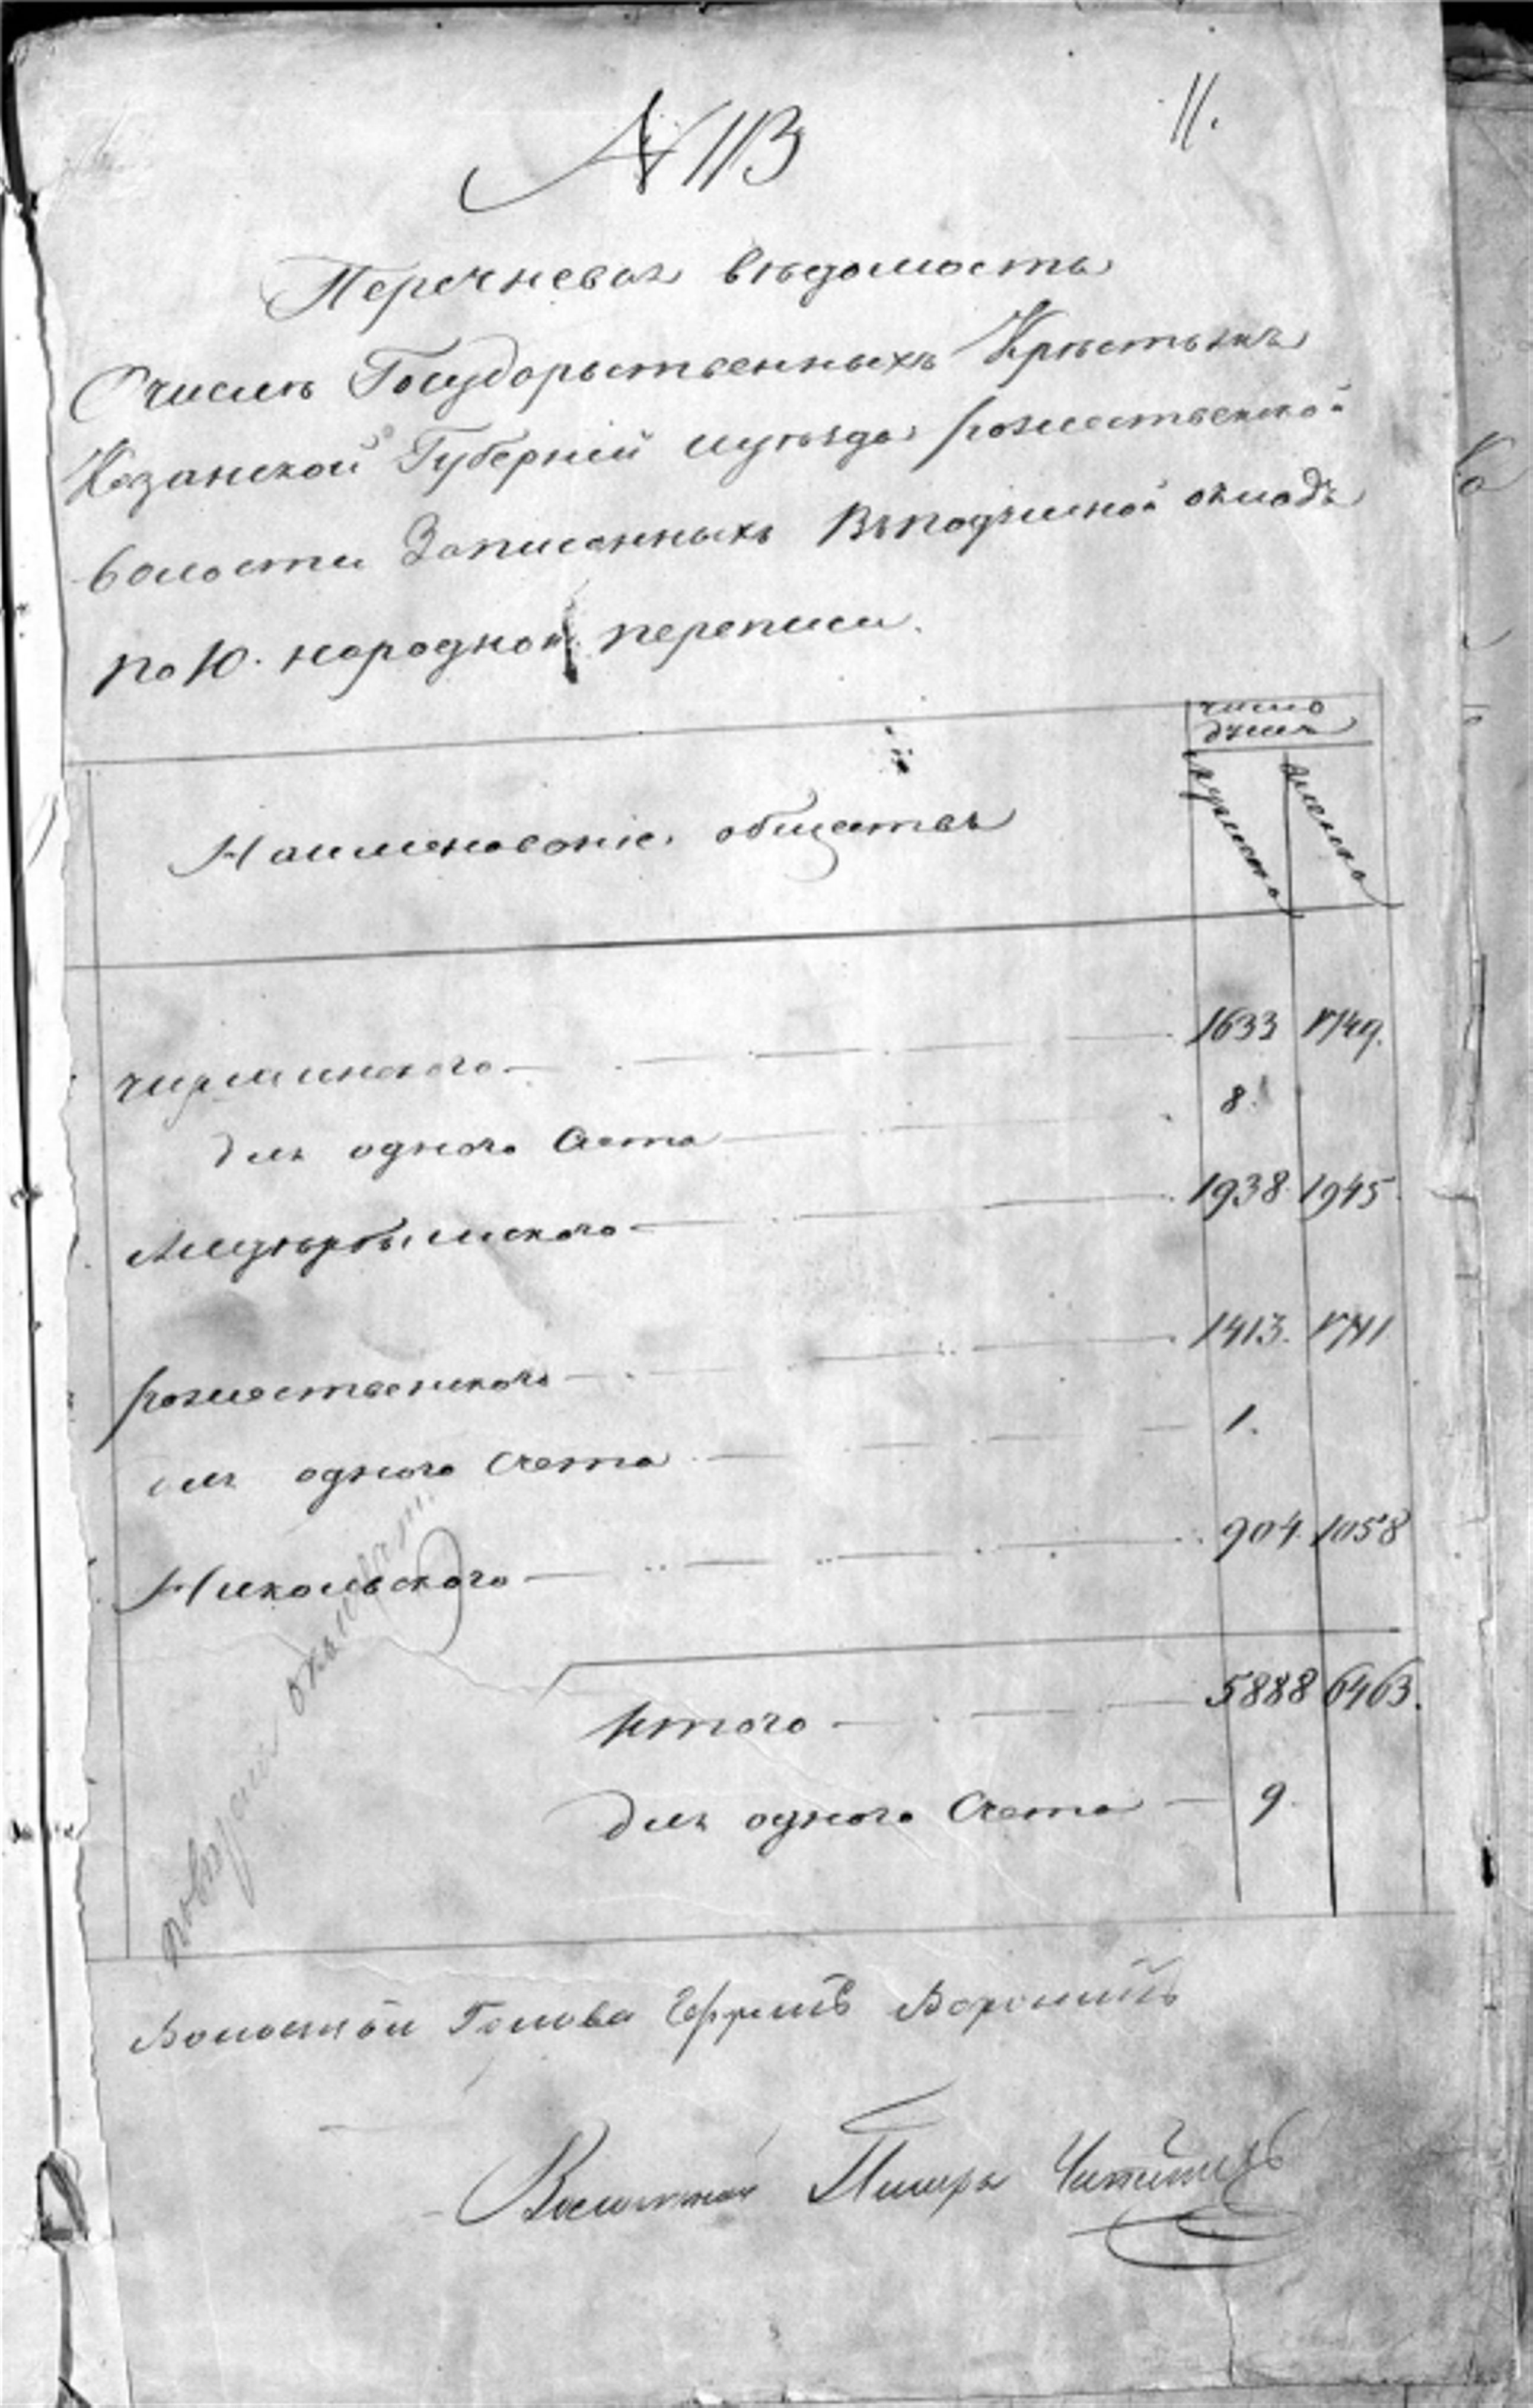 № 113
11.
Перечневая вѣдомость
О числѣ Государьственныхъ Крѣстьянъ
Казанской Губерніи и уѣзда рожественской
волости Записанныхъ Въподушной окладъ
по 10. народной переписи.
число
душъ
Наименованіе обществъ
мужеска
женска
чирминского 1633 1749.
для одного Счета 8.
1938 1945
рожественского 1413. 1711
для одного Счета 1.
Никольского 904 1058
Итого 5888 6463.
для одного Счета 9.
Волостной Голова Ефремъ Воронинъ
Волостной Писарь